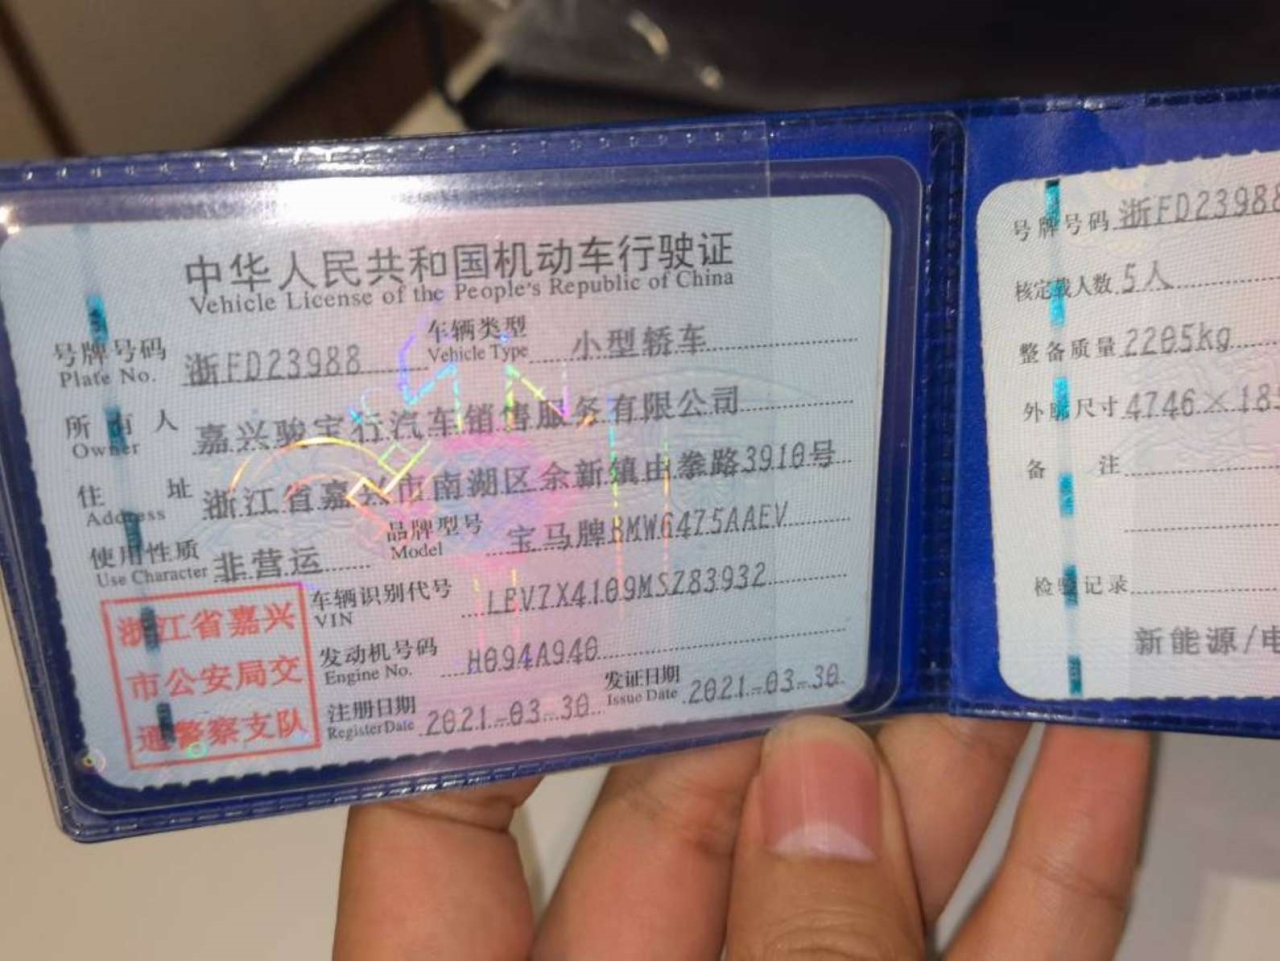 中华人民共和国机动车行驶证
Vehicle License of the People's Republic of China
号牌号码 浙FD23988 车辆类型 小型轿车
Plate No. Vehicle Type
所有人 嘉兴骏宝行汽车销售服务有限公司
Owner
住址 浙江省嘉兴市南湖区余新镇由拳路3910号
Address
使用性质 非营运 品牌型号 宝马牌BMW6475AAEV
Use Character Model
车辆识别代号 LBV7X4109MSZ83932
VIN
发动机号码 H094A940
Engine No.
注册日期 2021-03-30 发证日期 2021-03-30
Register Date Issue Date
浙江省嘉兴
市公安局交
通警察支队
号牌号码 浙FD23988
核定载人数 5人
整备质量 2205kg
外廓尺寸 4746×18
备注
检验记录
新能源/电